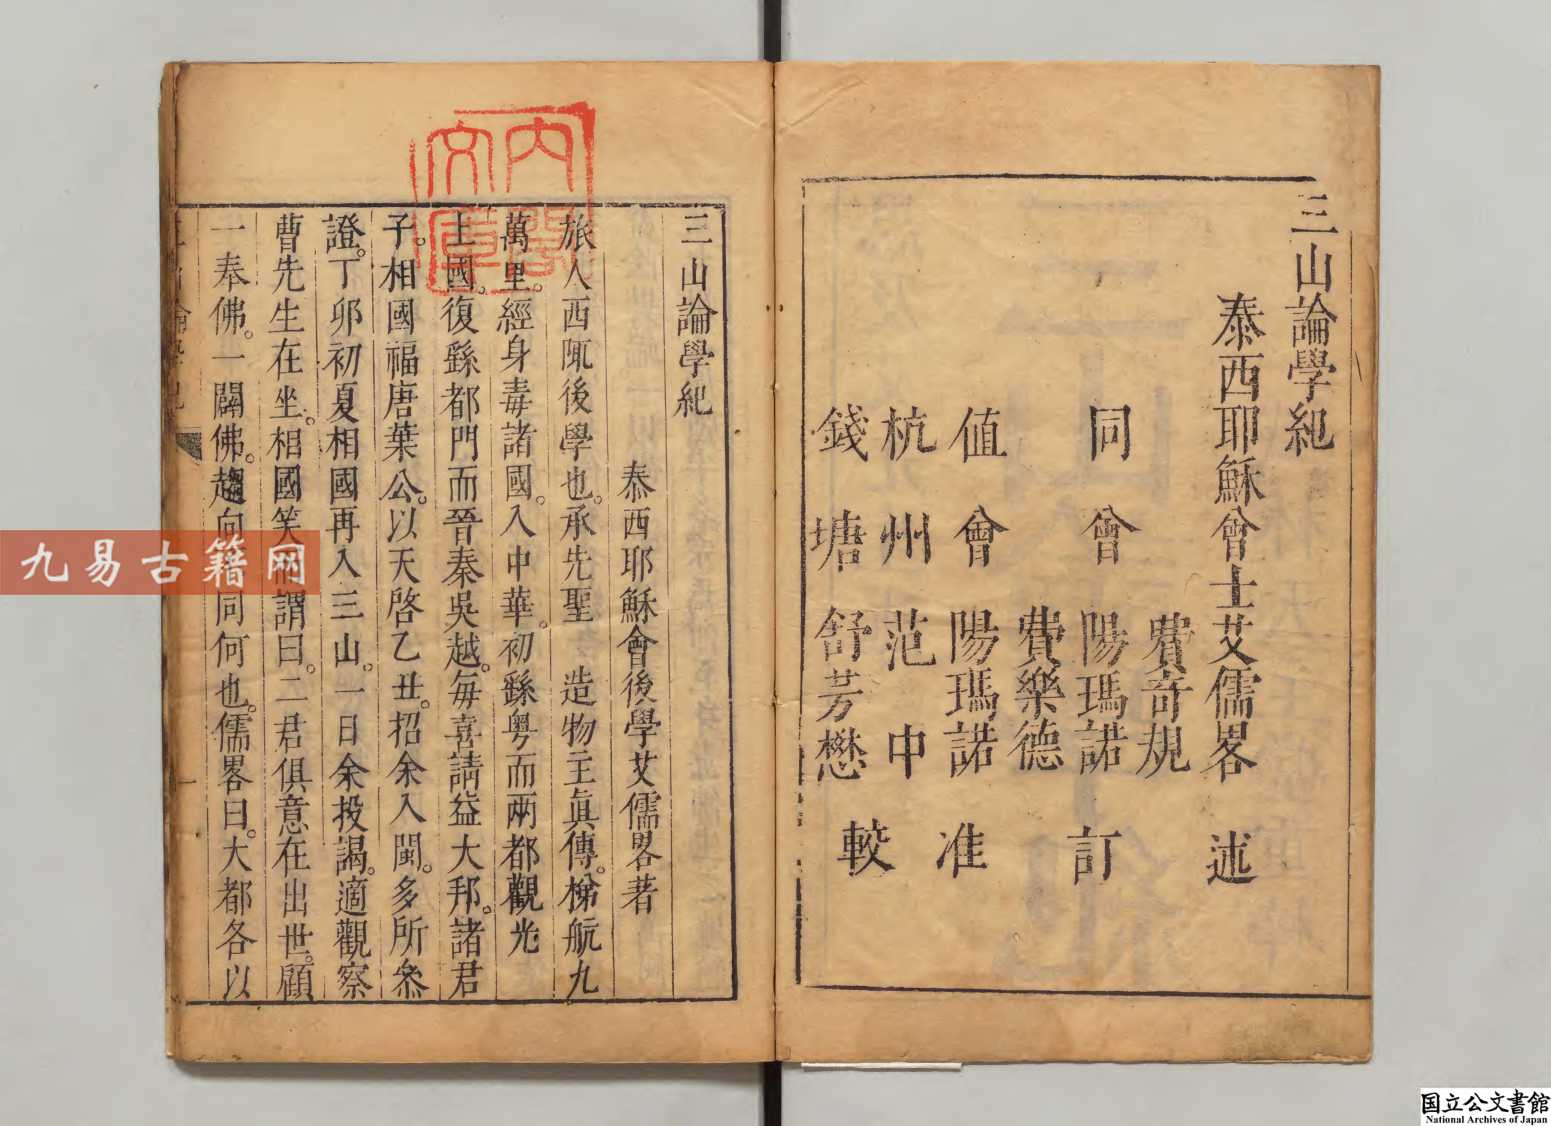 三山論學紀
泰西耶穌會士艾儒畧 述
費奇規
同會 陽瑪諾 訂
費樂德
值會 陽瑪諾 准
杭州 范中
錢塘 舒芳懋 較
三山論學紀
泰西耶穌會後學艾儒畧著
旅人西陬後學也。承先聖 造物主眞傳。梯航九
萬里。經身毒諸國。入中華。初繇粤而兩都觀光
上國。復繇都門而晉秦吳越。每喜請益大邦。諸君
子。相國福唐葉公。以天啓乙丑。招余入閩。多所叅
證。丁卯初夏相國再入三山。一日余投謁。適觀察
曹先生在坐。相國笑而謂曰。二君俱意在出世。顧
一奉佛。一闢佛。趨向不同何也。儒畧曰。大都各以
内閣文庫
九易古籍网
国立公文書館
National Archives of Japan